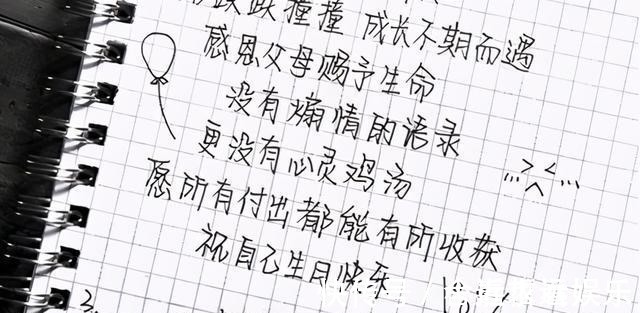 跌跌撞撞 成长不期而遇
感恩父母赐予生命
没有煽情的语录
更没有心灵鸡汤
愿所有付出都能有所收获
祝自己生日快乐